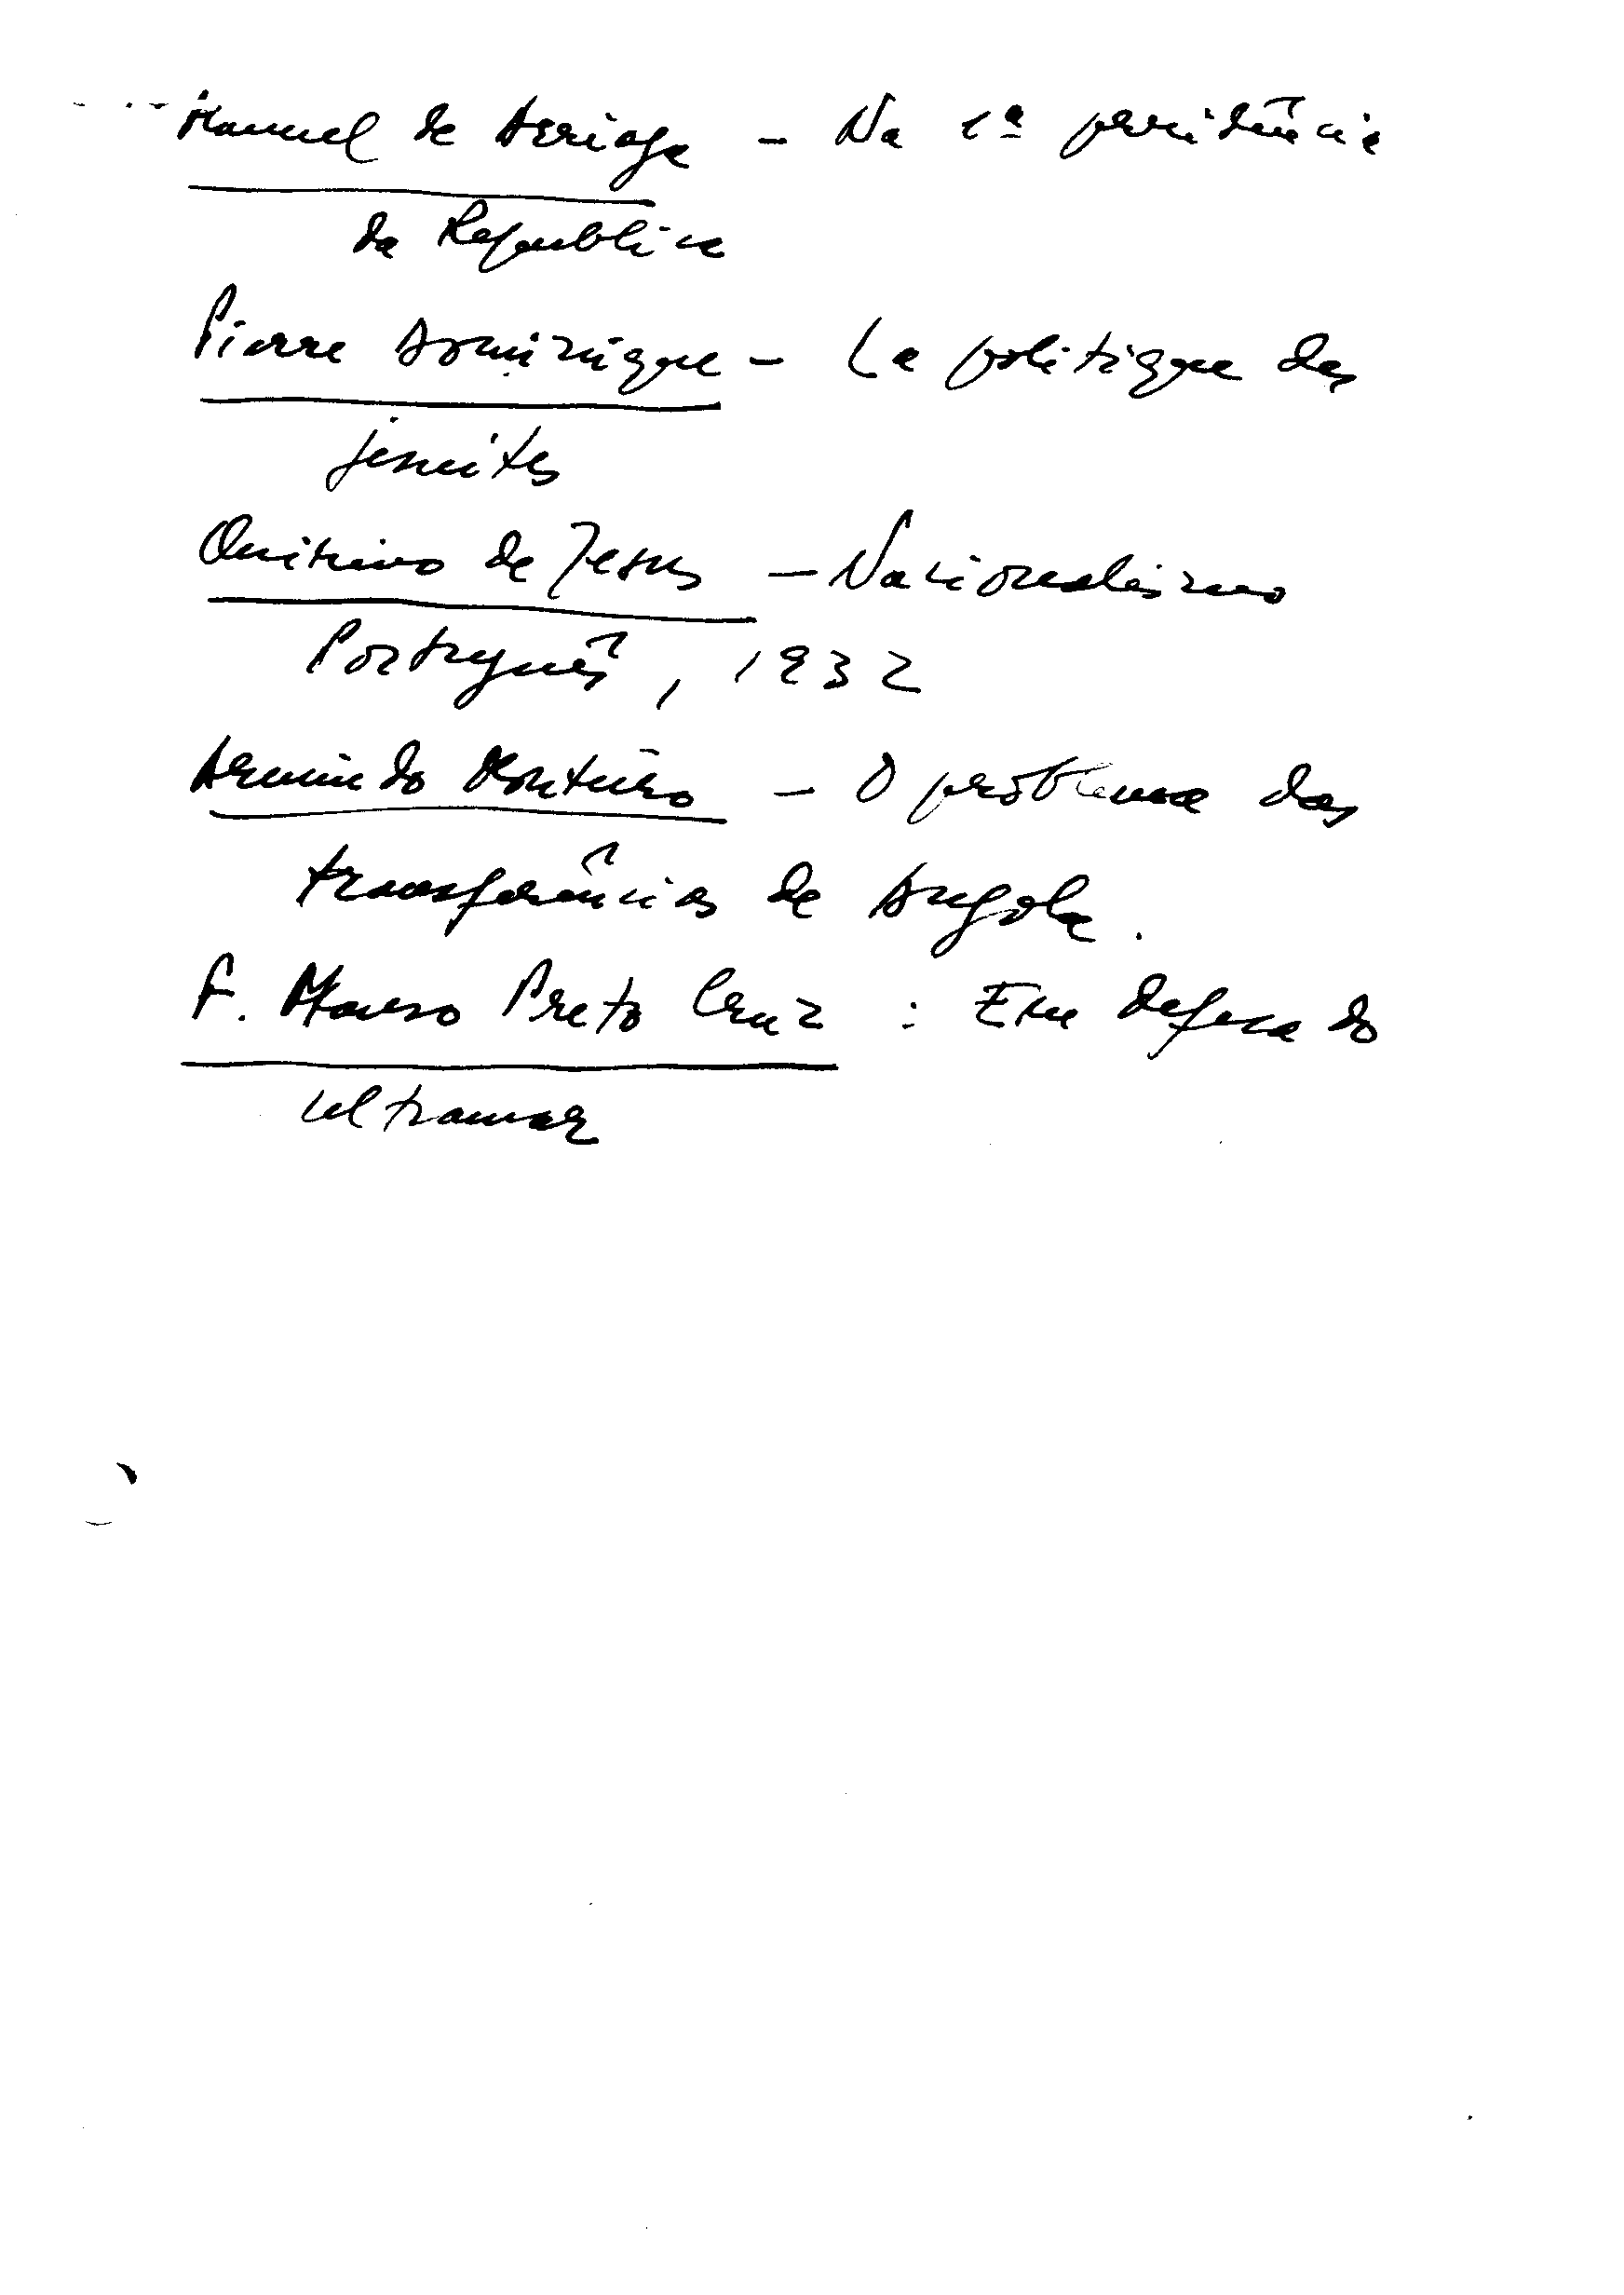 Manuel de Arriaga - Na 1ª presidência
da Republica
Pierre Dominique - La politique des
jesuites
Quirino de Jesus - Nacionalismo
Português, 1932
Armindo Monteiro - O problema das
transferências de Angola.
F. Preto Cruz : Em defesa do
ultramar